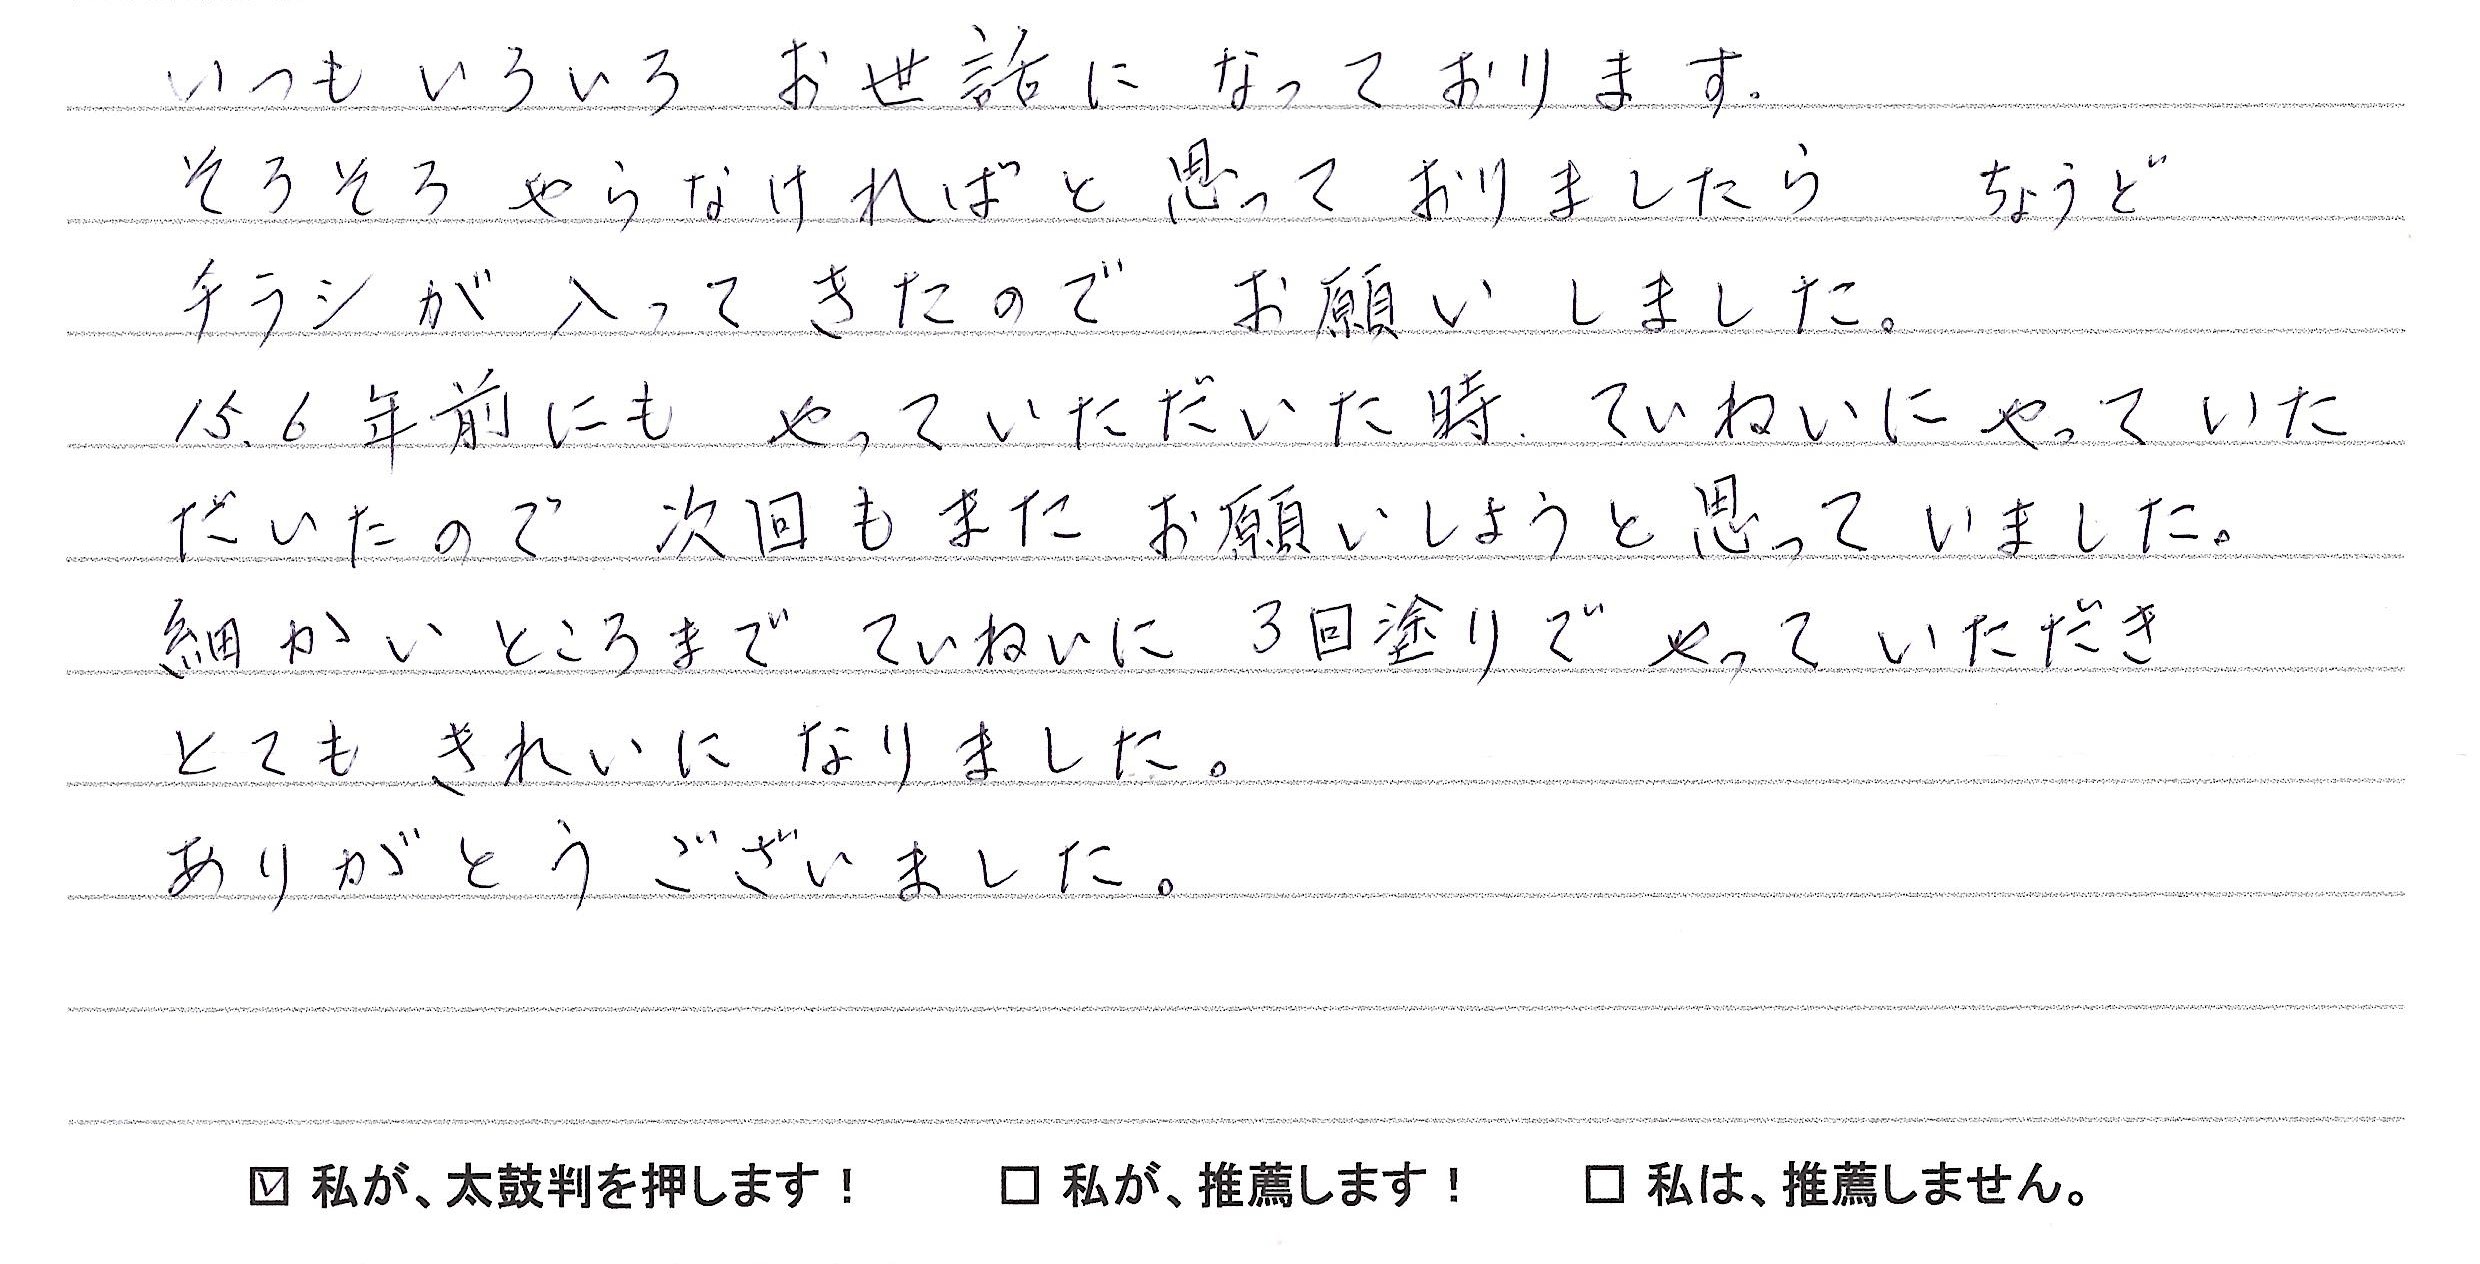 いつもいろいろ お世話に なって おります.
そろそろ やらなければと 思って おりましたら ちょうど
チラシが 入って きたので お願い しました。
15.6年前にも やって いただいた時. ていねいに やって いた
だいたので 次回もまた お願いしようと思って いました。
細かい ところまで ていねいに 3回塗りで やって いただき
とても きれいに なりました。
ありがとう ございました。
☑ 私が、太鼓判を押します！ □ 私が、推薦します！ □ 私は、推薦しません。